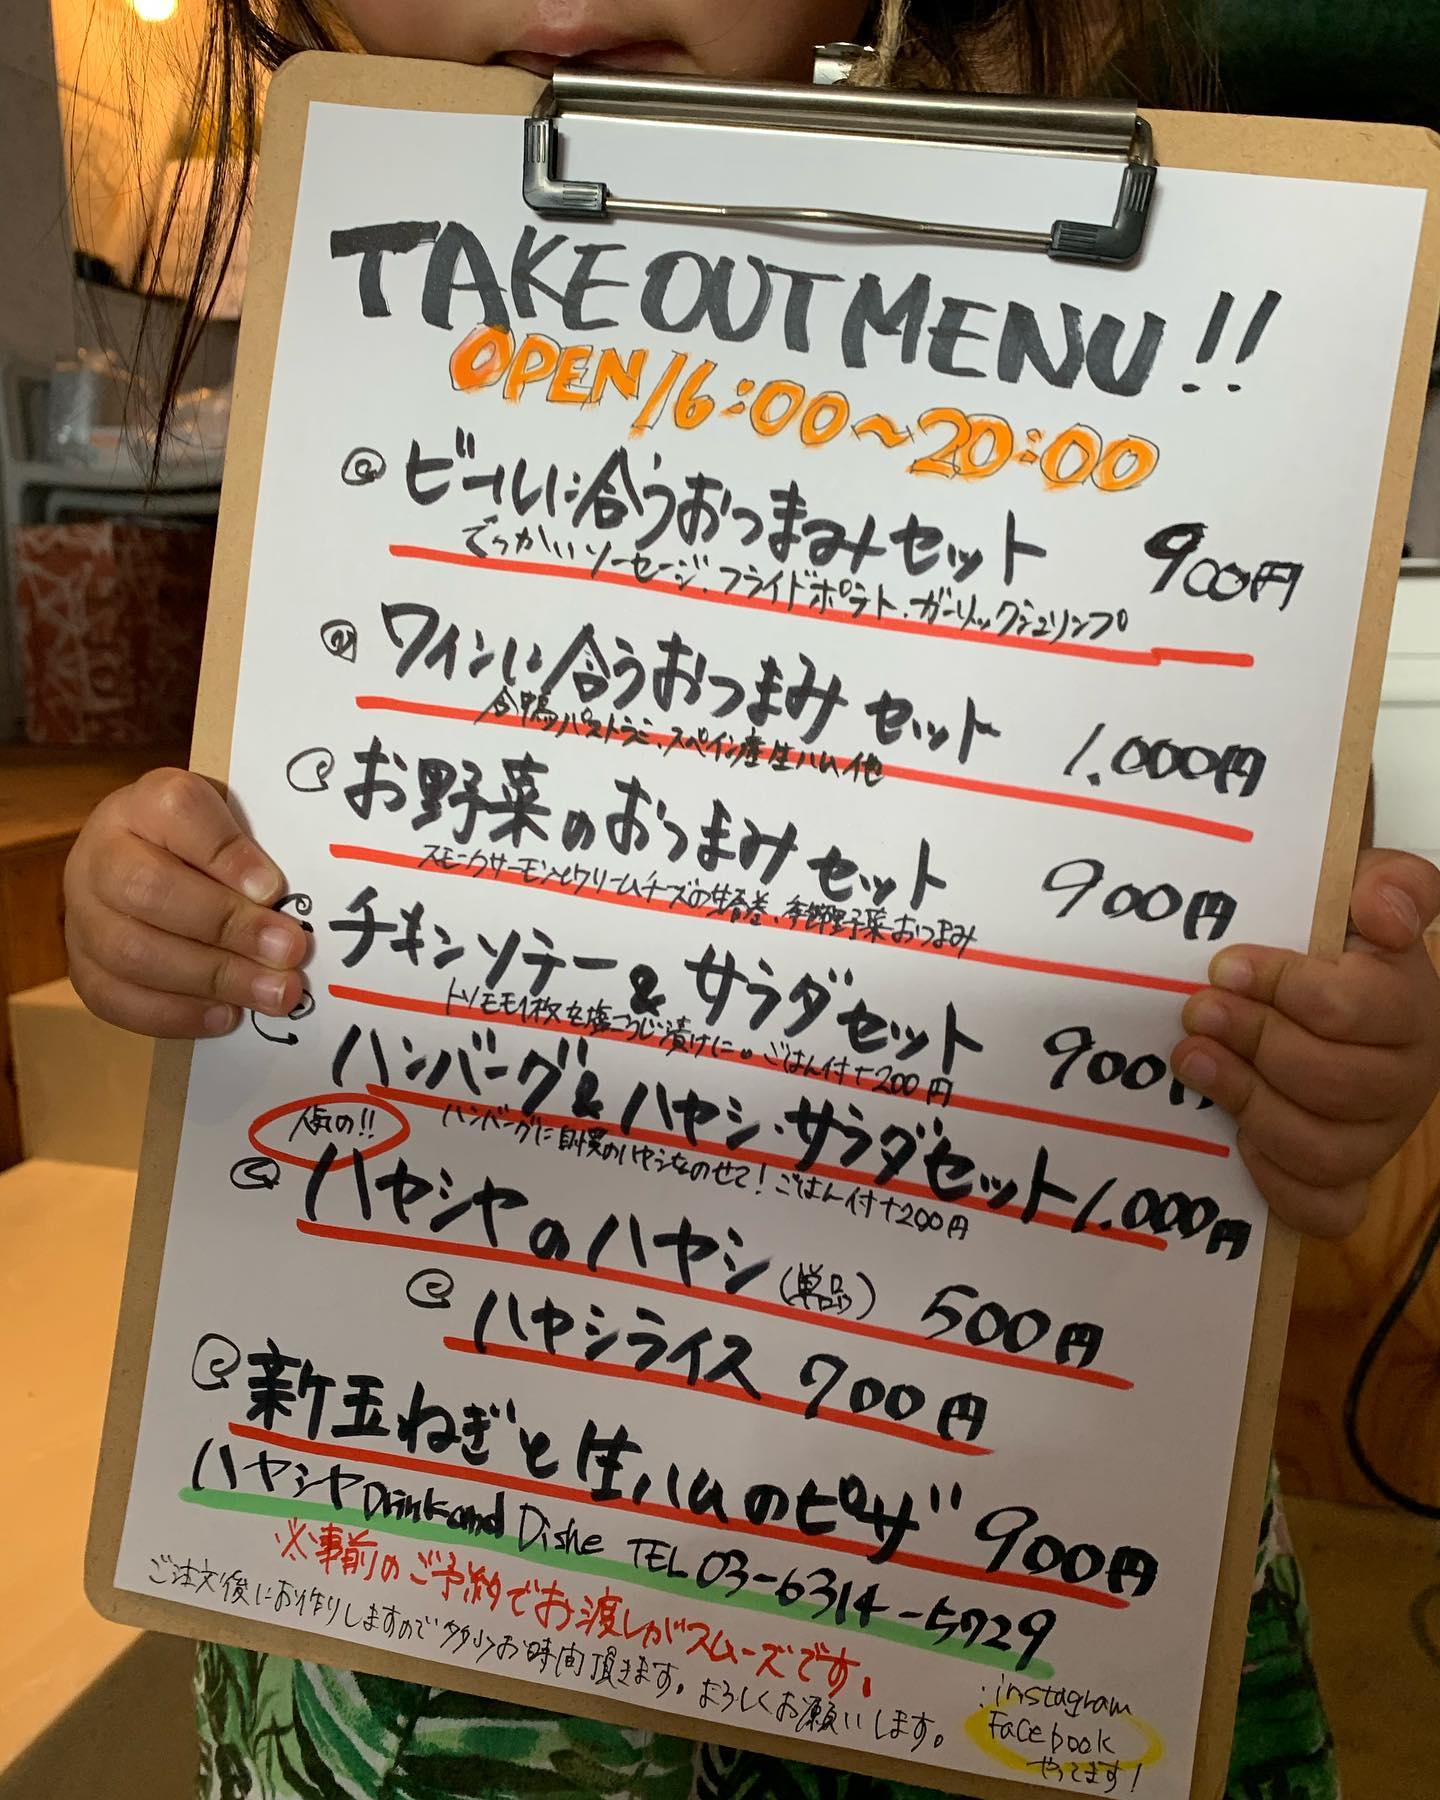 TAKE OUT MENU!!
OPEN/16:00〜20:00
ビールに合うおつまみセット 900円
でっかいソーセージ.フライドポテト.ガーリックシュリンプ
ワインに合うおつまみセット 1.000円
合鴨パストラミ、スペイン産生ハム他
お野菜のおつまみセット 900円
スモークサーモンとクリームチーズの生春巻、季節野菜おつまみ
チキンソテー&サラダセット 900円
トリモモ1枚を塩こうじ漬けに。ごはん付+200円
ハンバーグ&ハヤシ・サラダセット 1.000円
ハンバーグに自慢のハヤシをのせて!ごはん付+200円
人気の!!
ハヤシヤのハヤシ(単品) 500円
ハヤシライス 700円
新玉ねぎと生ハムのピザ 900円
ハヤシヤ Drink and Dishe TEL 03-6314-5729
※事前のご予約でお渡しがスムーズです。
ご注文後にお作りしますので多少お時間頂きます。よろしくお願いします。
:instagram
Facebook
やってます!